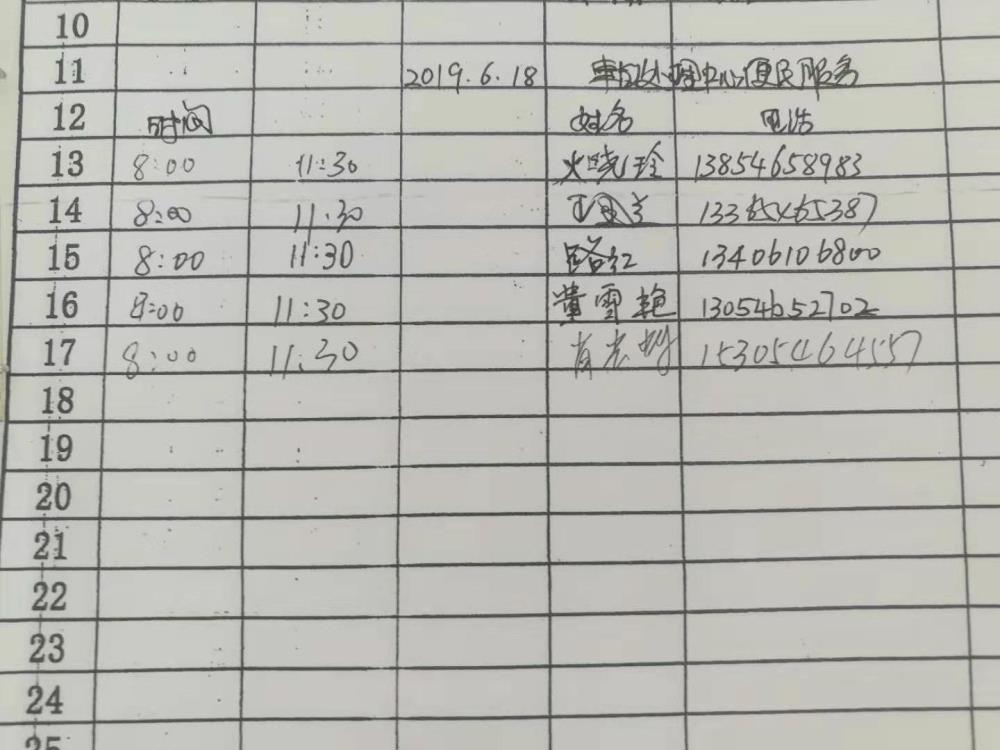 10
11 2019.6.18 事故处理中心便民服务
12 时间 姓名 电话
13 8:00 11:30 火晓玲 13854658983
14 8:00 11.30 13365465387
15 8:00 11:30 路红 13406106800
16 8:00 11:30 董雪艳 13054652702
17 8:00 11:30 15305464557
18
19
20
21
22
23
24
25